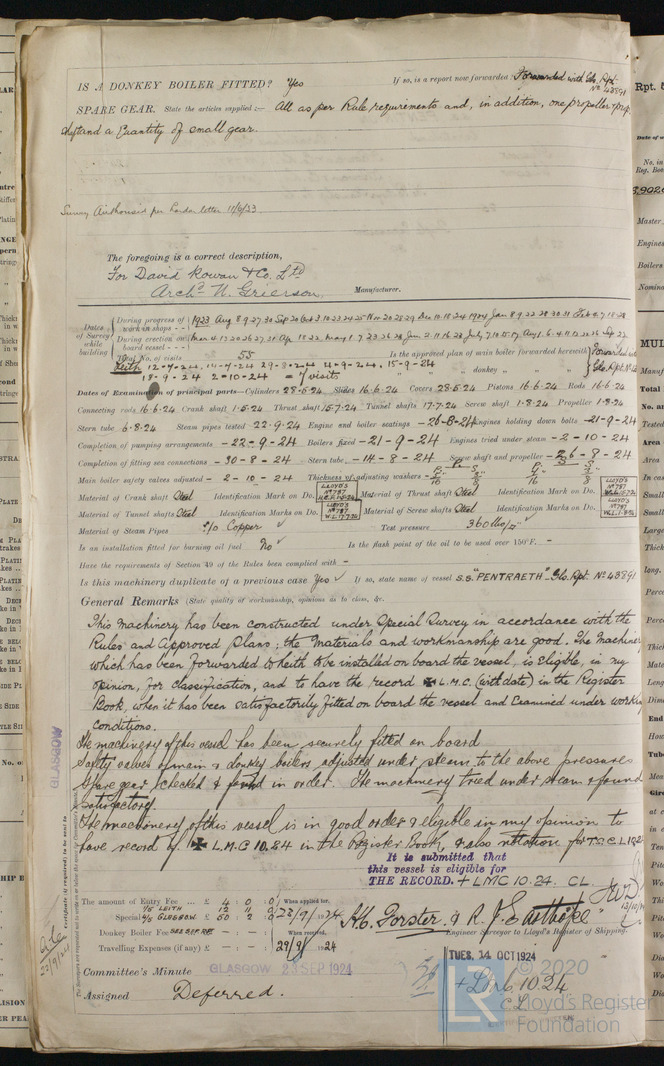 IS A DONKEY BOILER FITTED? Yes If so, is a report now forwarded? Forwarded with Gls. Rpt. No 43891
SPARE GEAR. State the articles supplied :— All as per Rule requirements and, in addition, one propeller, prop.
shaft and a Quantity of small gear.
Survey Authorised per London letter 11/6/23
The foregoing is a correct description,
For David Rowan & Co. Ltd
Archd. W. Grierson, Manufacturer.
Dates of Survey while building
During progress of work in shops - - 1923 Aug 8. 9. 27. 30 Sep 20 Oct 3. 10. 23. 24. 25 Nov 20. 28. 29 Dec 10. 18. 24 1924 Jan 8. 9. 22. 28. 30. 31 Feb 4. 7. 18. 28
During erection on board vessel - - -
Total No. of visits 55 Is the approved plan of main boiler forwarded herewith Forwarded with
Leith 12-7-24, 14-7-24 29-8-24 4-9-24, 15-9-24 " " " donkey " " " Gls. Rpt. No
18-9-24 2-10-24 = 7 visits
Dates of Examination of principal parts—Cylinders 28-5-24 Slides 16-6-24 Covers 28-5-24 Pistons 16-6-24 Rods 16-6-24
Connecting rods 16-6-24 Crank shaft 1-5-24 Thrust shaft 15-7-24 Tunnel shafts 17-7-24 Screw shaft 1-8-24 Propeller 1-8-24
Stern tube 6-8-24 Steam pipes tested 22-9-24 Engine and boiler seatings -26-8-24 Engines holding down bolts -21-9-24
Completion of pumping arrangements -22-9-24 Boilers fixed -21-9-24 Engines tried under steam -2-10-24
Completion of fitting sea connections -30-8-24 Stern tube -14-8-24 Screw shaft and propeller -26-8-24
Main boiler safety valves adjusted -2-10-24 Thickness of adjusting washers
Material of Crank shaft Steel Identification Mark on Do. LLOYD'S No 787 Material of Thrust shaft Steel Identification Mark on Do. LLOYD'S No 787
Material of Tunnel shafts Steel Identification Marks on Do. LLOYD'S No 787 W.L. 17-7-24 Material of Screw shafts Steel Identification Marks on Do. LLOYD'S No 787 W.L. 1-8-24
Material of Steam Pipes S/D Copper ✓ Test pressure 360 lbs/□" ✓
Is an installation fitted for burning oil fuel No ✓ Is the flash point of the oil to be used over 150°F. -
Have the requirements of Section 49 of the Rules been complied with -
Is this machinery duplicate of a previous case Yes ✓ If so, state name of vessel S.S. "PENTRAETH" Gls. Rpt. No 43891
General Remarks (State quality of workmanship, opinions as to class, &c.
This machinery has been constructed under Special Survey in accordance with the
Rules and Approved Plans; the Materials and workmanship are good. The Machinery
which has been forwarded to Leith to be installed on board the vessel, is eligible, in my
opinion, for classification, and to have the record ✠ L.M.C. (with date) in the Register
Book, when it has been satisfactorily fitted on board the vessel and Examined under working
conditions.
The machinery of this vessel has been securely fitted on board
Safety valves of main & donkey boilers adjusted under steam to the above pressures
Spare gear checked & found in order. The machinery tried under steam & found
satisfactory.
The machinery of this vessel is in good order & eligible in my opinion to
have record of ✠ L.M.C 10.24 in the Register Book, & also notation for T.S. C L 1924
It is submitted that
this vessel is eligible for
THE RECORD. + LMC 10.24. CL.
GLASGOW
The amount of Entry Fee ... £ 4 : 0 : 0 When applied for,
Special 4/5 GLASGOW £ 50 : 2 : 28/9/1924
Donkey Boiler Fee £ - : - : When received,
Travelling Expenses (if any) £ - : - : 29/9/1924
Engineer Surveyor to Lloyd's Register of Shipping.
Committee's Minute GLASGOW 23 SEP 1924 TUES. 14 OCT 1924
Assigned Deferred. + LMC 10.24
CL
© 2020
LR Lloyd's Register
Foundation